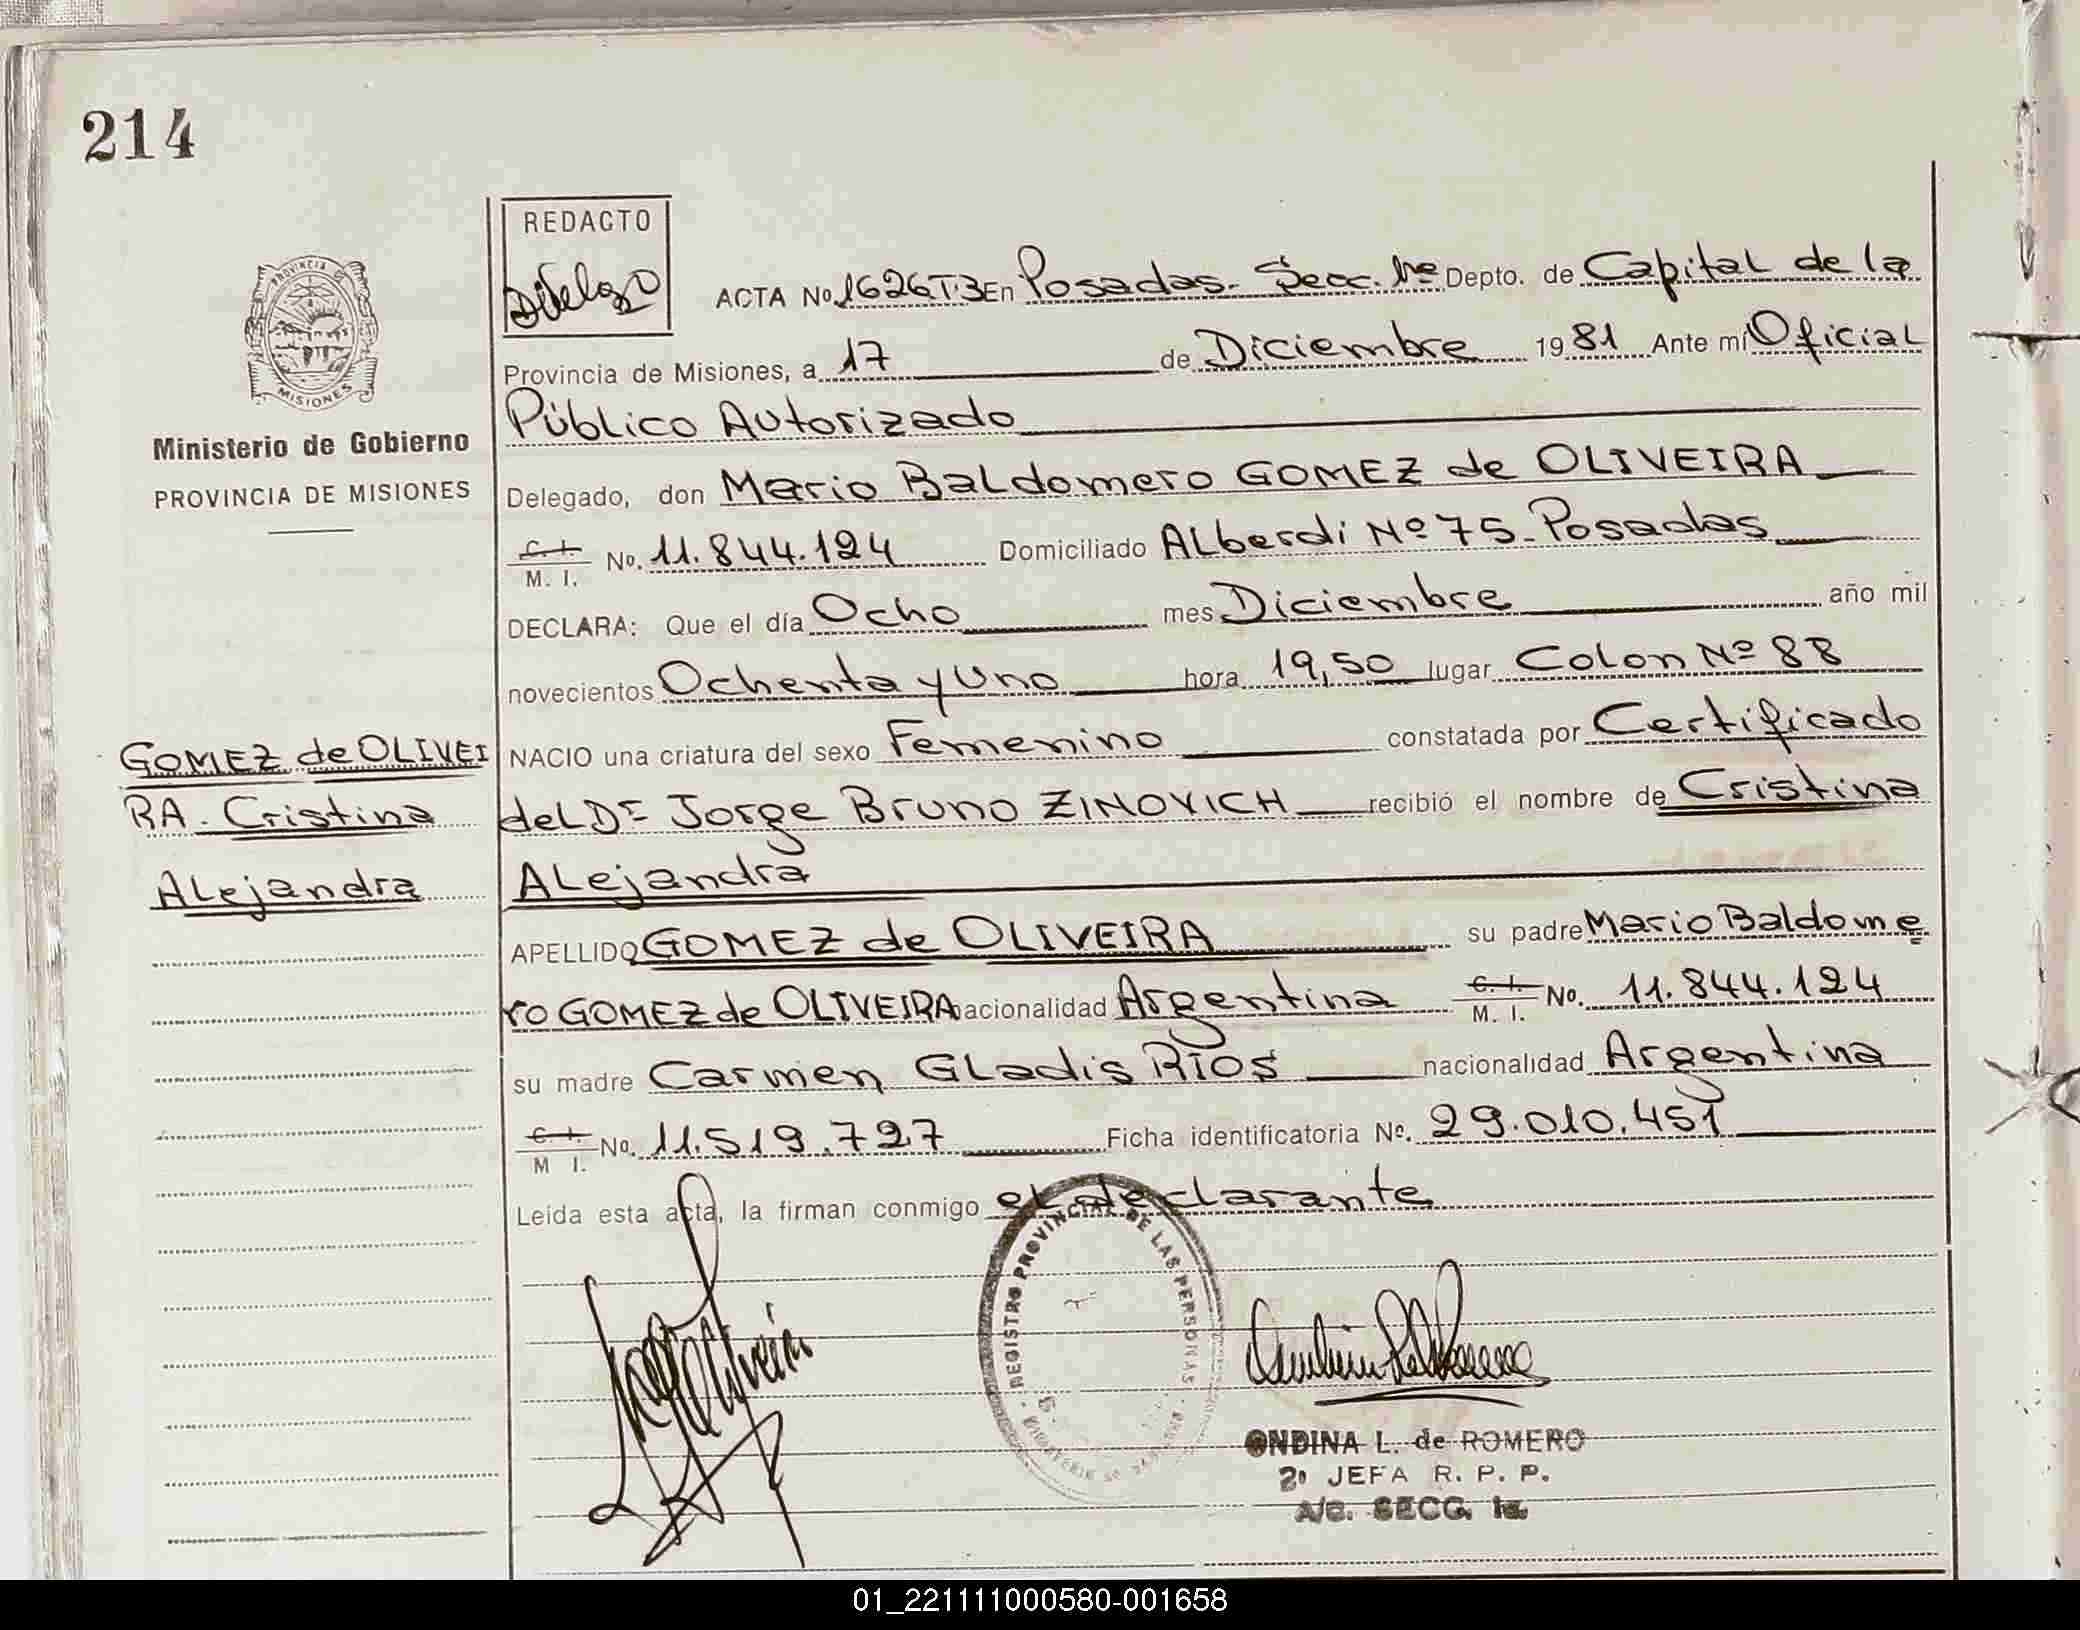 214
REDACTO
PROVINCIA DE
MISIONES
Ministerio de Gobierno
PROVINCIA DE MISIONES
ACTA No. 1626 T.3 En Posadas. Secc. 1ra Depto. de Capital de la
Provincia de Misiones, a 17 de Diciembre 1981 Ante mí Oficial
Público Autorizado
Delegado, don Mario Baldomero GOMEZ de OLIVEIRA
C. I.
M. I. No. 11.844.124 Domiciliado Alberdi Nº 75 - Posadas
DECLARA: Que el día Ocho mes Diciembre año mil
novecientos Ochenta y Uno hora 19,50 lugar Colon Nº 88
NACIO una criatura del sexo Femenino constatada por Certificado
del Dr Jorge Bruno ZINOVICH recibió el nombre de Cristina
Alejandra
APELLIDO GOMEZ de OLIVEIRA su padre Mario Baldome
ro GOMEZ de OLIVEIRA nacionalidad Argentina C. I.
M. I. No. 11.844.124
su madre Carmen Gladis RIOS nacionalidad Argentina
C. I.
M I. No. 11.519.727 Ficha identificatoria No. 29.010.451
Leída esta acta, la firman conmigo el declarante
GOMEZ de OLIVEI
RA. Cristina
Alejandra
REGISTRO PROVINCIAL DE LAS PERSONAS
ONDINA L. de ROMERO
2º JEFA R. P. P.
A/C. SECC. 1a.
01_221111000580-001658